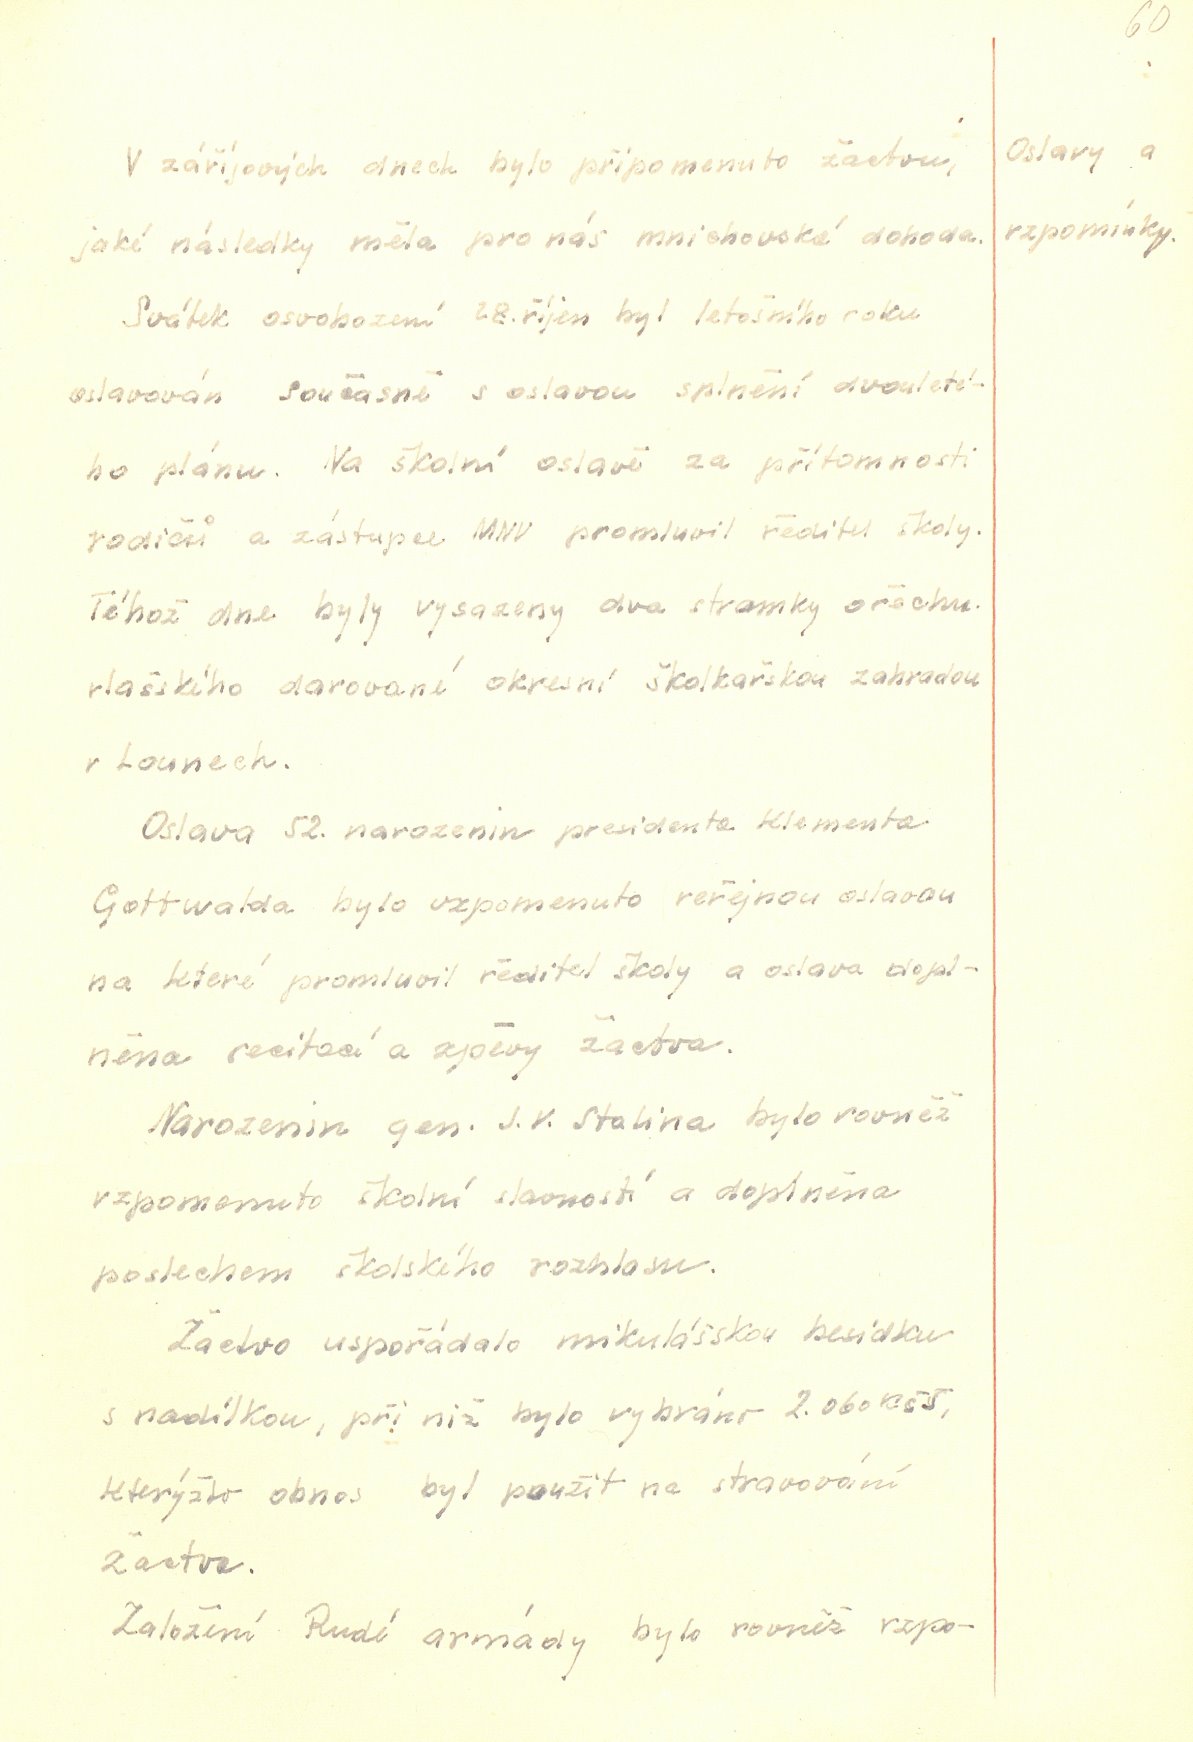 60
Oslavy a
vzpomínky.
V záříjových dnech bylo připomenuto žactvu,
jaké následky měla pro nás mnichovská dohoda.
Svátek osvobození 28. říjen byl letošního roku
oslavován současně s oslavou splnění dvouleté-
ho plánu. Na školní oslavě za přítomnosti
rodičů a zástupce MNV promluvil ředitel školy.
Téhož dne byly vysazeny dva stromky ořechu
vlašského darované okresní školkařskou zahradou
v Lounech.
Oslava 52. narozenin presidenta Klementa
Gottwalda bylo vzpomenuto veřejnou oslavou
na které promluvil ředitel školy a oslava dopl-
něna recitací a zpěvy žactva.
Narozenin gen. J. V. Stalina bylo rovněž
vzpomenuto školní slavností a doplněna
poslechem školského rozhlasu.
Žactvo uspořádalo mikulášskou besídku
s nadílkou, při níž bylo vybráno 2.060 Kčs,
kterýžto obnos byl použit na stravování
žactva.
Založení Rudé armády bylo rovněž vzpo-